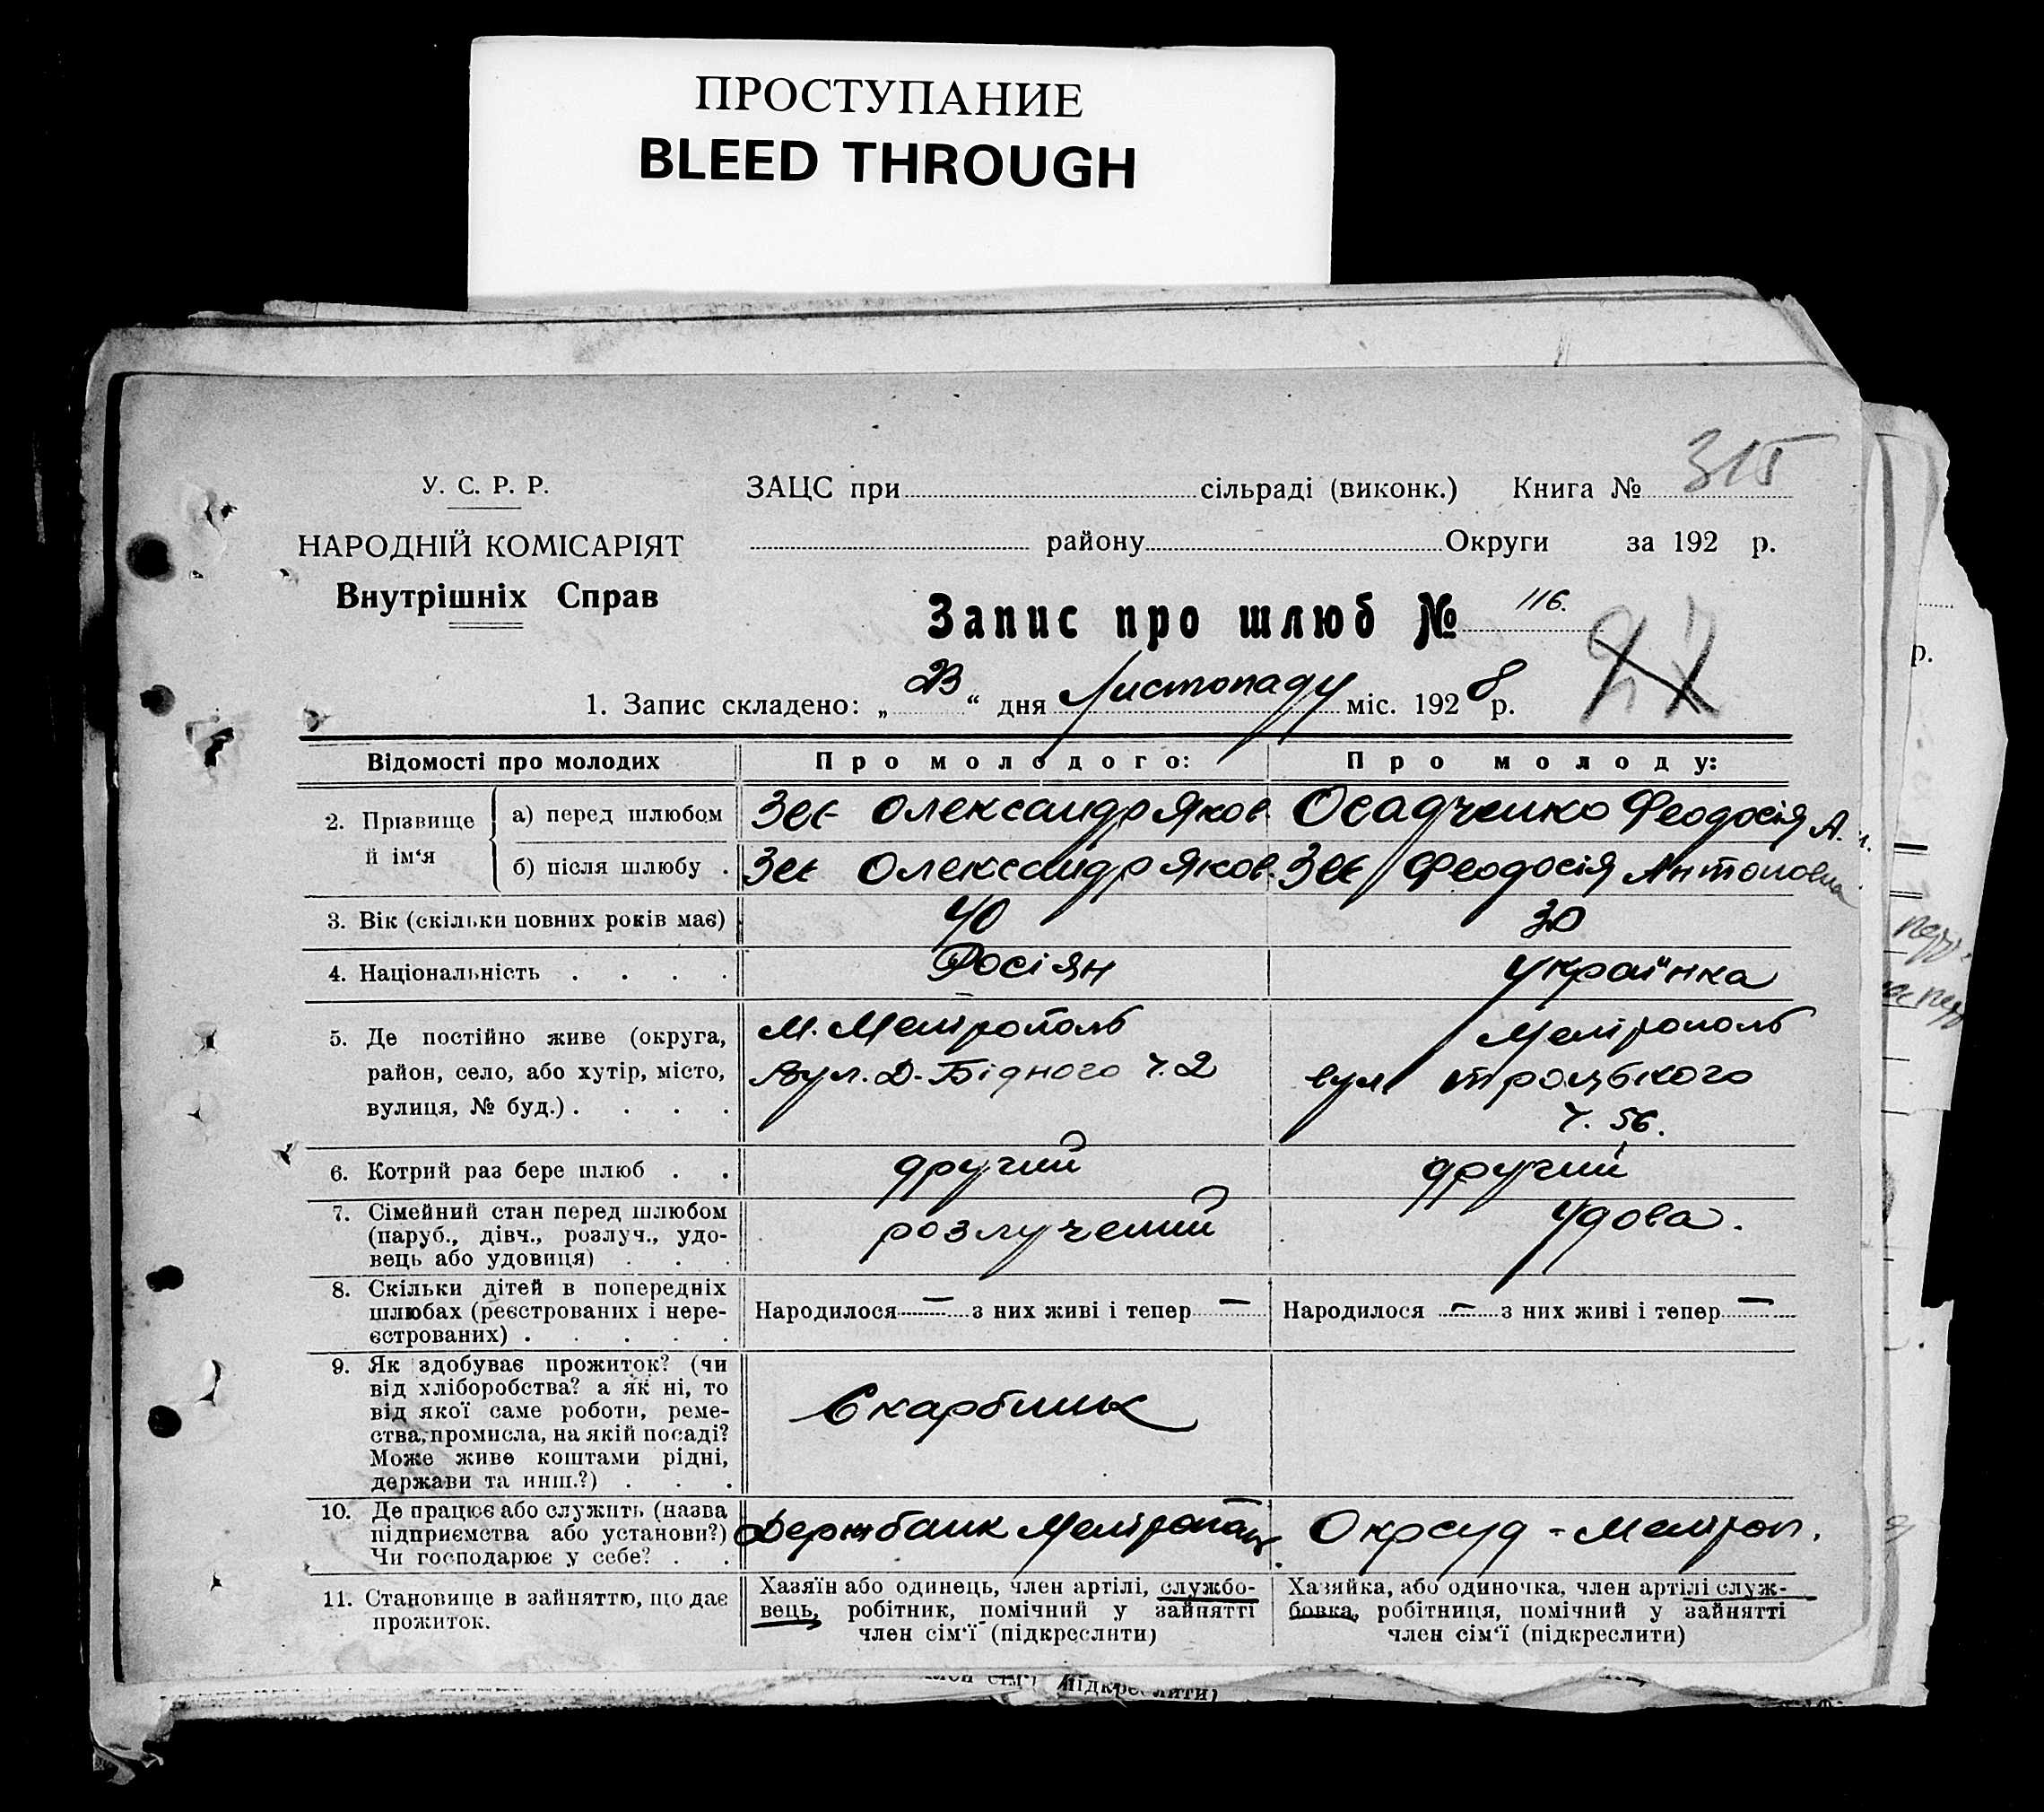 ПРОСТУПАНИЕ
BLEED THROUGH
315
У. С. Р. Р.
НАРОДНІЙ КОМІСАРІЯТ
Внутрішніх Справ
ЗАЦС при сільраді (виконк.) Книга №
району Округи за 192 р.
Запис про шлюб № 116.
27
1. Запис складено: „23“ дня Листопаду міс. 1928 р.
Відомості про молодих
Про молодого:
Про молоду:
2. Прізвище й ім‘я
а) перед шлюбом
Олександр Яков.
Осадченко Феодосія А.
б) після шлюбу .
Олександр Яков.
Феодосія Антоновна
3. Вік (скільки повних років має)
40
30
4. Національність . . . .
Росіян
Українка
5. Де постійно живе (округа,
район, село, або хутір, місто,
вулиця, № буд.) . . . .
М. Мелітополь
Вул. Д-Бідного ч. 2
Мелітополь
вул Троцького
ч. 56.
6. Котрий раз бере шлюб . .
другий
другий
7. Сімейний стан перед шлюбом
(паруб., дівч., розлуч., удо-
вець або удовиця) . . .
розлучений
Удова.
8. Скільки дітей в попередніх
шлюбах (реєстрованих і нере-
єстрованих) . . . . .
Народилося — з них живі і тепер —
Народилося — з них живі і тепер —
9. Як здобуває прожиток? (чи
від хліборобства? а як ні, то
від якої саме роботи, реме-
ства, промисла, на якій посаді?
Може живе коштами рідні,
держави та инш.?) . . .
Скарбник
10. Де працює або служить (назва
підприємства або установи?)
Чи господарює у себе? . .
Держбанк
Окрсуд - Меліроп.
11. Становище в зайняттю, що дає
прожиток.
Хазяїн або одинець, член артілі, службо-
вець, робітник, помічний у зайнятті
член сім‘ї (підкреслити)
Хазяйка, або одиночка, член артілі служ-
бовка, робітниця, помічний у зайнятті
член сім‘ї (підкреслити)
р.
член сім‘ї (підкреслити)